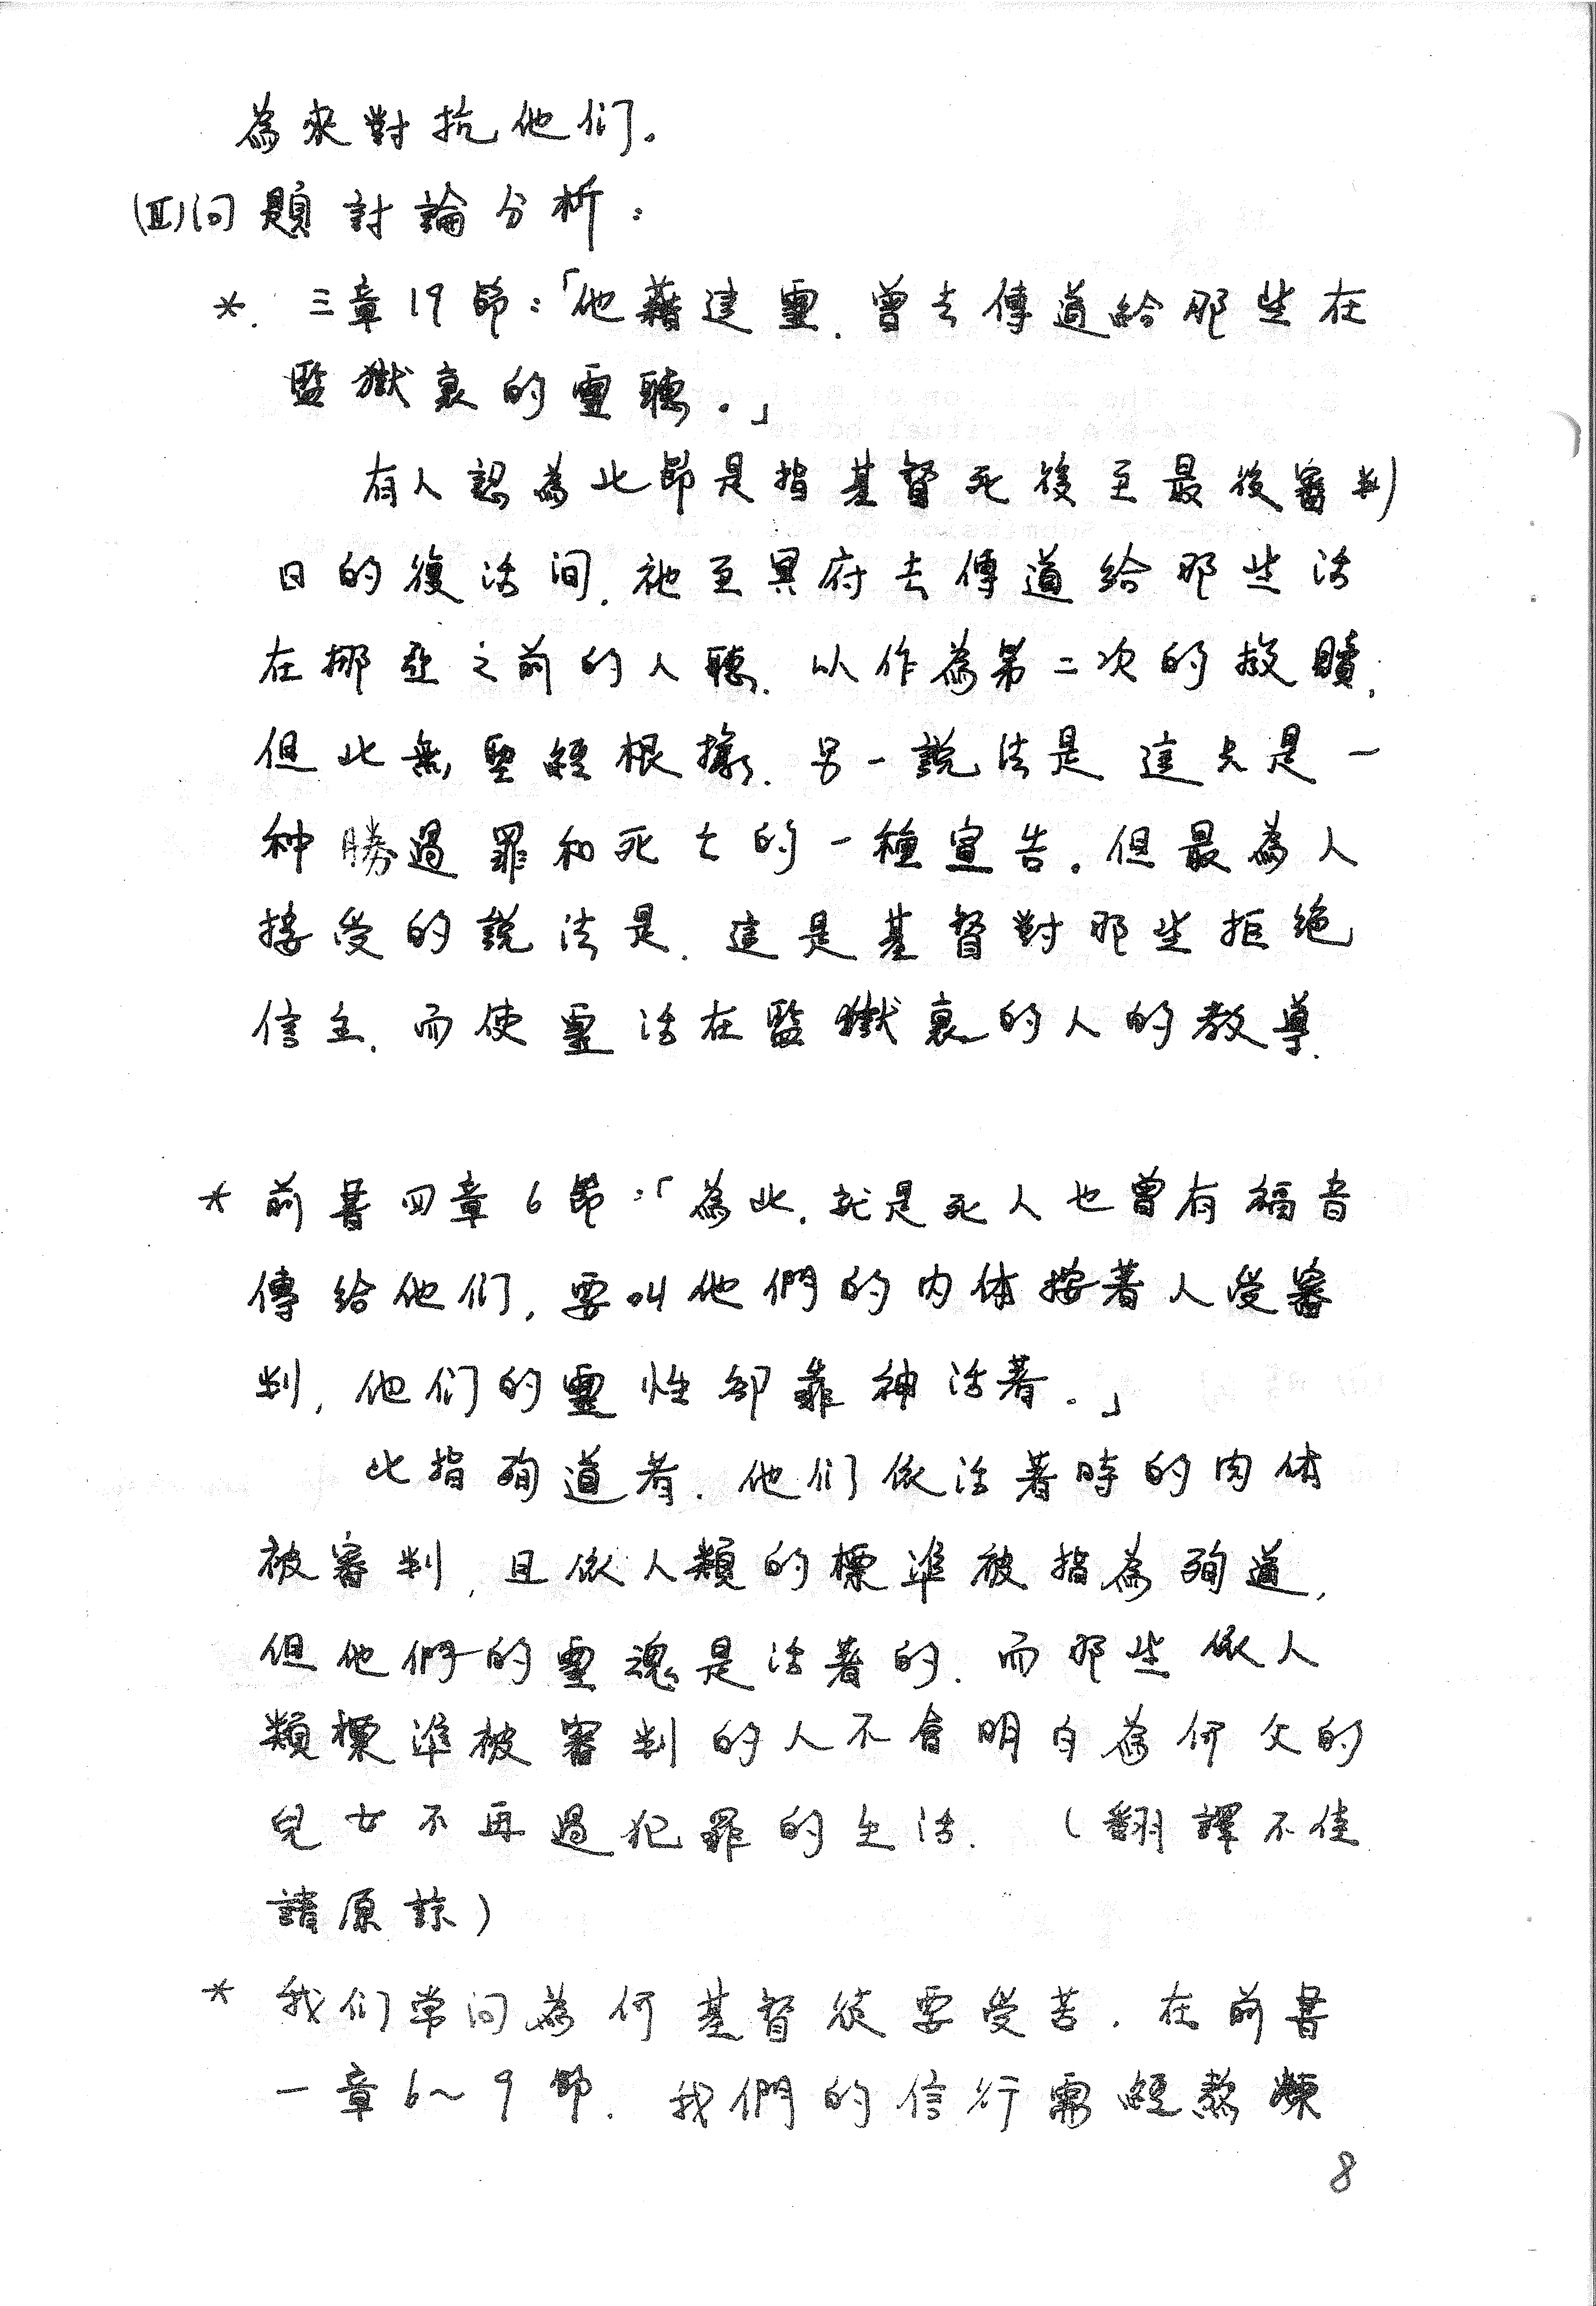 為來對抗他们。
(II)问題討論分析：
*. 三章19節：「他藉這靈.曾去傳道給那些在
監獄裏的靈聽。」
有人認為此節是指基督死後至最後審判
日的復活间.祂至冥府去傳道給那些活
在挪亞之前的人聽.以作為第二次的救贖.
但此無聖經根據.另一說法是這只是一
种勝過罪和死亡的一種宣告.但最為人
接受的說法是.這是基督對那些拒绝
信主.而使靈活在監獄裏的人的教導.
* 前書四章6節：「為此.就是死人也曾有福音
傳給他们,要叫他們的肉体按著人受審
判,他们的靈性卻靠神活著.」
此指殉道者.他们依活著時的肉体
被審判,且依人類的標準被指為殉道,
但他們的靈魂是活著的.而那些依人
類標準被審判的人不會明白為何父的
兒女不再過犯罪的生活. (翻譯不佳
請原諒)
* 我们常问為何基督徒要受苦.在前書
一章6~9節.我們的信行需經熬煉
8